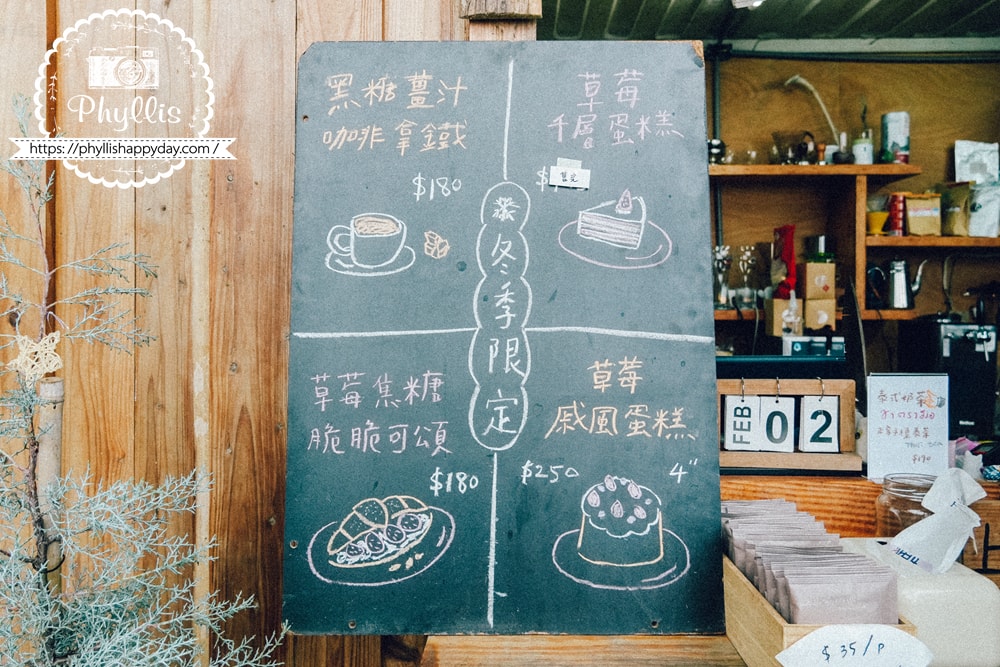 Phyllis
https://phyllishappyday.com/
黑糖薑汁
咖啡拿鐵
$180
草莓
千層蛋糕
$
售完
冬季限定
草莓焦糖
脆脆可頌
$180
草莓
戚風蛋糕
$250
4"
FEB 02
泰式奶茶
$190
$35/P